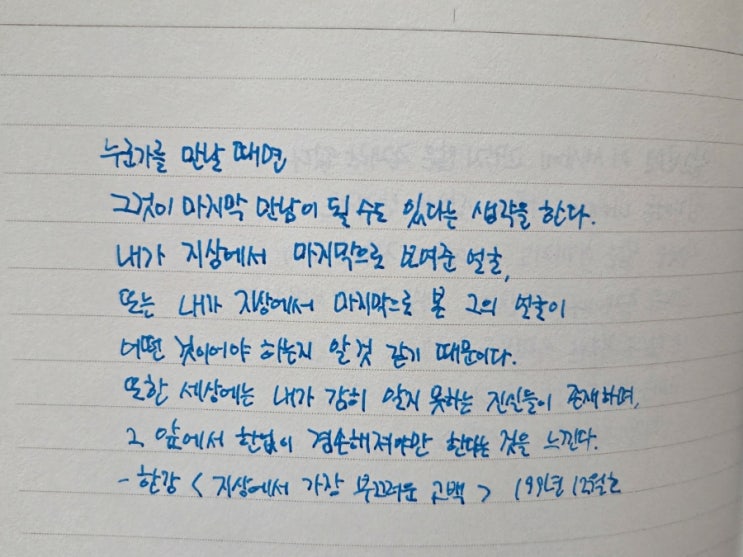 누군가를 만날 때면
그것이 마지막 만남이 될 수도 있다는 생각을 한다.
내가 지상에서 마지막으로 보여준 얼굴,
또는 내가 지상에서 마지막으로 본 그의 얼굴이
어떤 것이어야 하는지 알 것 같기 때문이다.
또한 세상에는 내가 감히 알지 못하는 진실들이 존재하며,
그 앞에서 한없이 겸손해져야만 한다는 것을 느낀다.
- 한강 < 지상에서 가장 부끄러운 고백 > 1991년 12월호